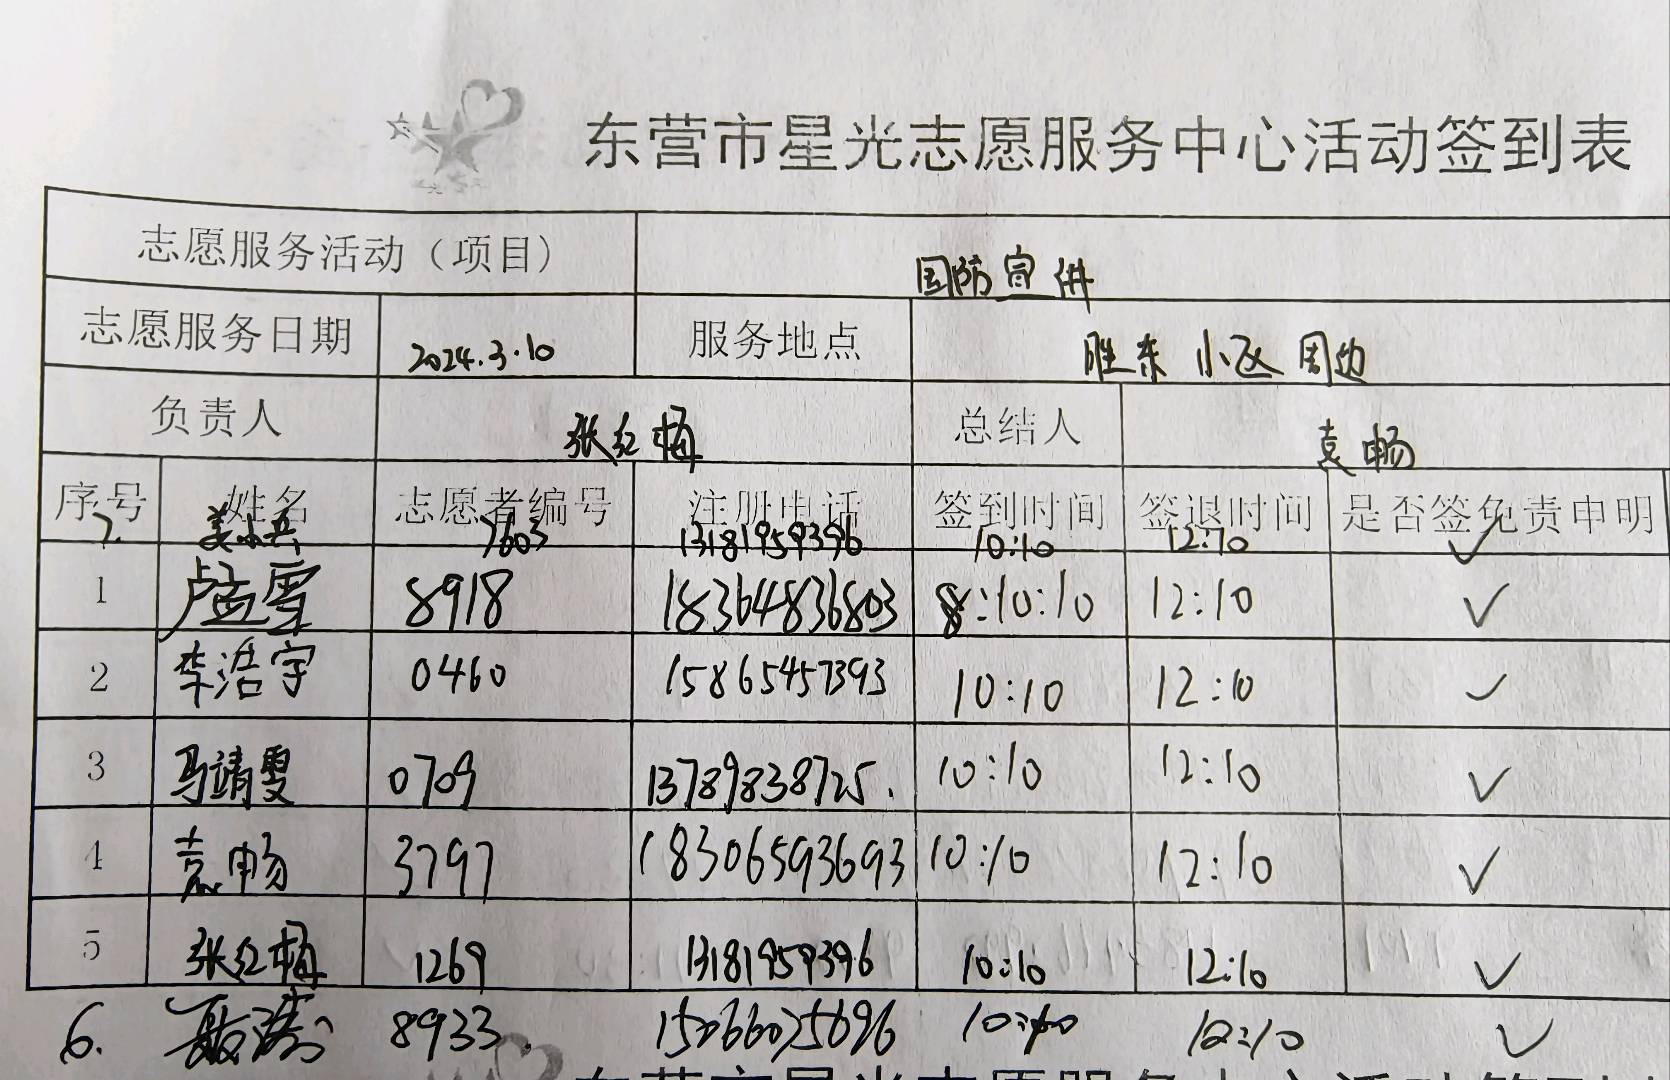 东营市星光志愿服务中心活动签到表
志愿服务活动（项目） 国防宣讲
志愿服务日期 2024.3.10 服务地点 胜东小区周边
负责人 张红梅 总结人 袁畅
序号 姓名 志愿者编号 注册电话 签到时间 签退时间 是否签免责申明
7. 姜小兵 7603 13181959396 10:10 12:10 ✓
1 卢孟雪 8918 18364836803 8:10:10 12:10 ✓
2 李浩宇 0460 15865457393 10:10 12:10 ✓
3 马靖雯 0709 13789838725. 10:10 12:10 ✓
4 袁畅 3797 18306593693 10:10 12:10 ✓
5 张红梅 1269 13181959396 10:10 12:10 ✓
6. 8933. 15266025696 10:10 12:10 ✓
东营市星光志愿服务中心活动签到